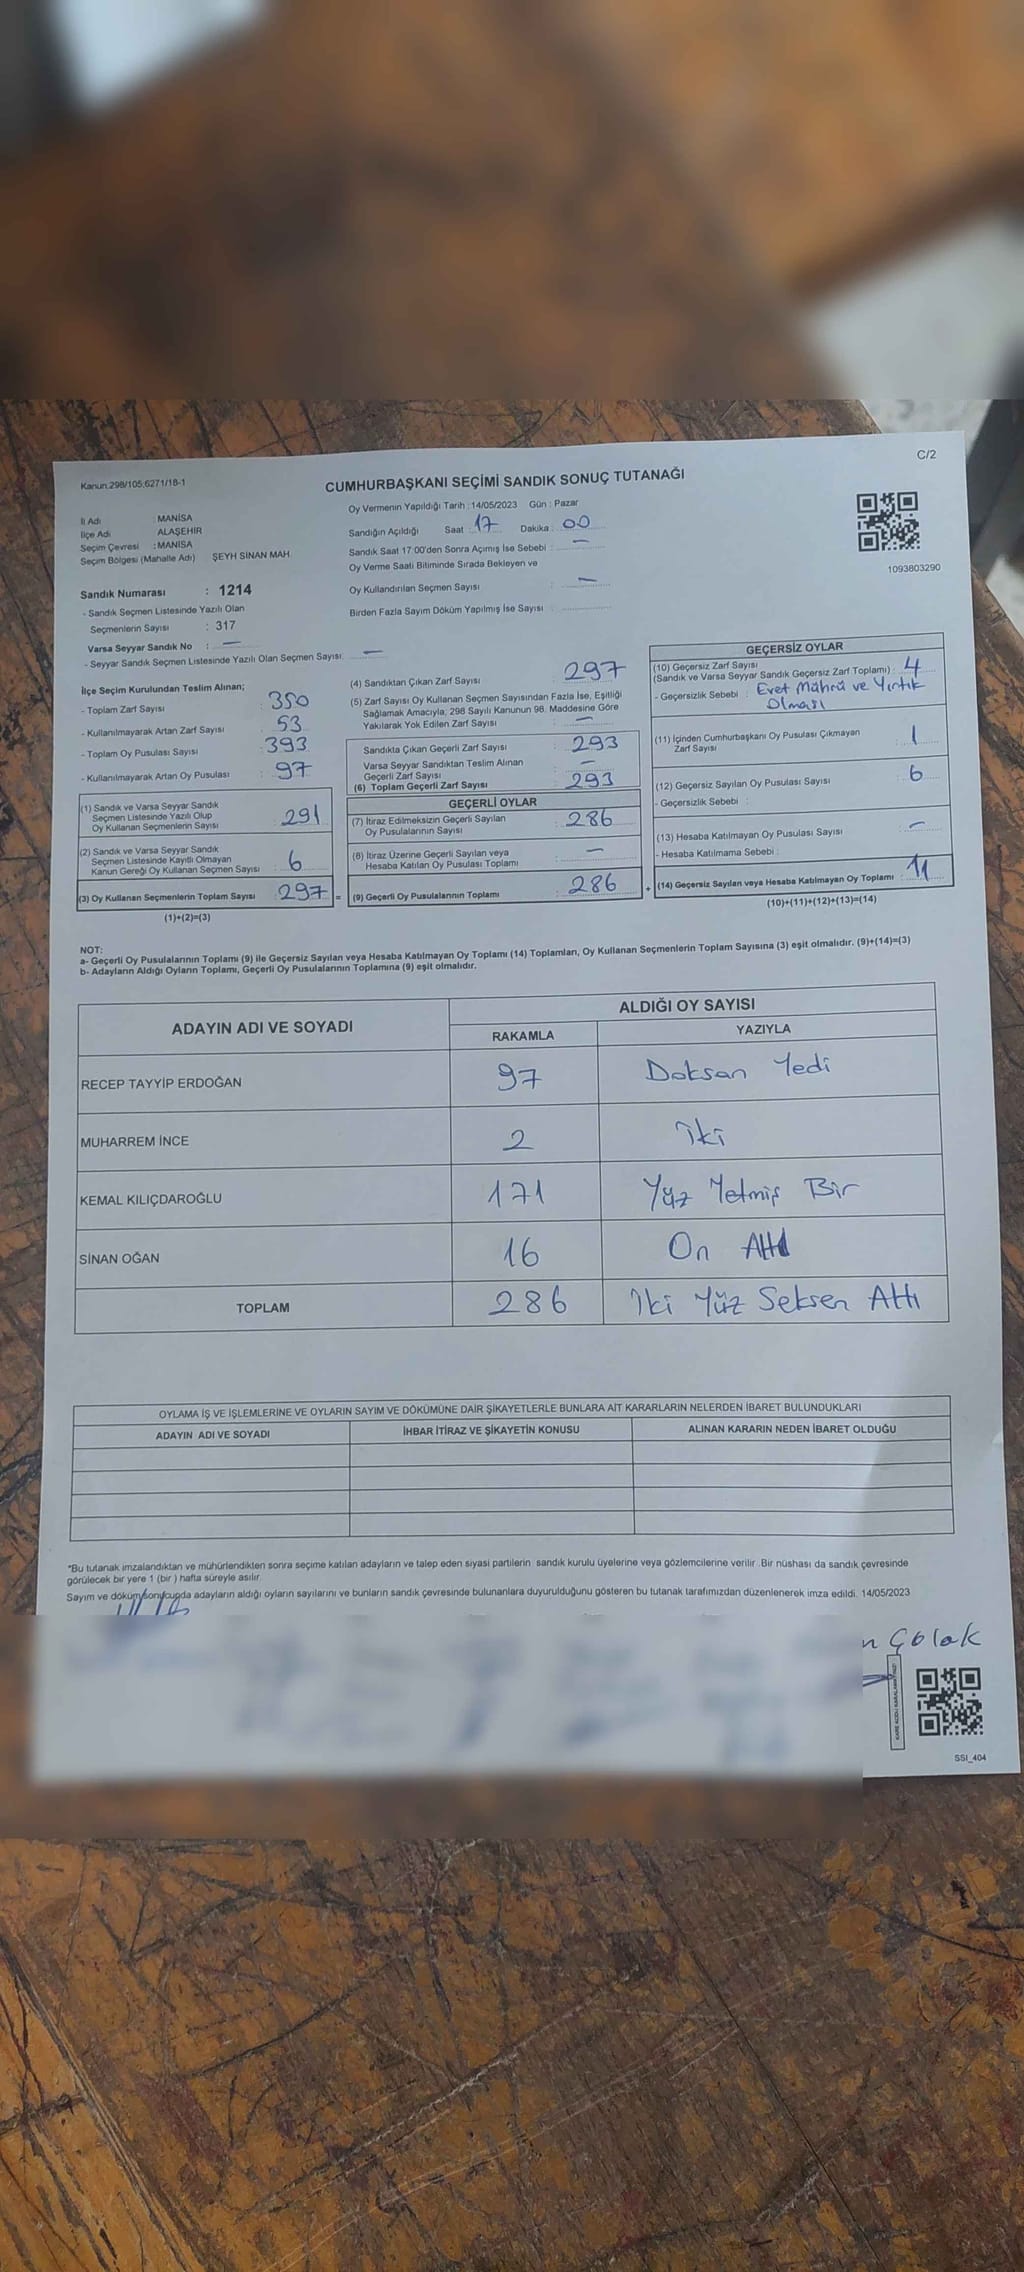 C/2
Kanun.298/105,6271/18-1
CUMHURBAŞKANI SEÇİMİ SANDIK SONUÇ TUTANAĞI
Oy Vermenin Yapıldığı Tarih :14/05/2023 Gün : Pazar
İl Adı : MANİSA
İlçe Adı ALAŞEHİR
Seçim Çevresi : MANİSA
Seçim Bölgesi (Mahalle Adı) ŞEYH SİNAN MAH.
Sandığın Açıldığı Saat : 17 Dakika : 00
Sandık Saat 17:00'den Sonra Açımış İse Sebebi : —
Oy Verme Saati Bitiminde Sırada Bekleyen ve
Oy Kullandırılan Seçmen Sayısı : —
Birden Fazla Sayım Döküm Yapılmış İse Sayısı :
1093803290
Sandık Numarası : 1214
- Sandık Seçmen Listesinde Yazılı Olan
Seçmenlerin Sayısı : 317
Varsa Seyyar Sandık No : —
- Seyyar Sandık Seçmen Listesinde Yazılı Olan Seçmen Sayısı: —
İlçe Seçim Kurulundan Teslim Alınan;
- Toplam Zarf Sayısı : 350
- Kullanılmayarak Artan Zarf Sayısı : 53
- Toplam Oy Pusulası Sayısı : 393
- Kullanılmayarak Artan Oy Pusulası : 97
(1) Sandık ve Varsa Seyyar Sandık
Seçmen Listesinde Yazılı Olup
Oy Kullanan Seçmenlerin Sayısı : 291
(2) Sandık ve Varsa Seyyar Sandık
Seçmen Listesinde Kayıtlı Olmayan
Kanun Gereği Oy Kullanan Seçmen Sayısı : 6
(3) Oy Kullanan Seçmenlerin Toplam Sayısı : 297 =
(1)+(2)=(3)
(4) Sandıktan Çıkan Zarf Sayısı : 297
(5) Zarf Sayısı Oy Kullanan Seçmen Sayısından Fazla İse, Eşitliği
Sağlamak Amacıyla; 298 Sayılı Kanunun 98. Maddesine Göre
Yakılarak Yok Edilen Zarf Sayısı : —
Sandıkta Çıkan Geçerli Zarf Sayısı : 293
Varsa Seyyar Sandıktan Teslim Alınan
Geçerli Zarf Sayısı : —
(6) Toplam Geçerli Zarf Sayısı : 293
GEÇERLİ OYLAR
(7) İtiraz Edilmeksizin Geçerli Sayılan
Oy Pusulalarının Sayısı : 286
(8) İtiraz Üzerine Geçerli Sayılan veya
Hesaba Katılan Oy Pusulası Toplamı : —
(9) Geçerli Oy Pusulalarının Toplamı : 286 +
GEÇERSİZ OYLAR
(10) Geçersiz Zarf Sayısı
(Sandık ve Varsa Seyyar Sandık Geçersiz Zarf Toplamı) : 4
- Geçersizlik Sebebi : Evet Mührü ve Yırtık
Olması
(11) İçinden Cumhurbaşkanı Oy Pusulası Çıkmayan
Zarf Sayısı : 1
(12) Geçersiz Sayılan Oy Pusulası Sayısı : 6
- Geçersizlik Sebebi :
(13) Hesaba Katılmayan Oy Pusulası Sayısı : —
- Hesaba Katılmama Sebebi :
(14) Geçersiz Sayılan veya Hesaba Katılmayan Oy Toplamı : 11
(10)+(11)+(12)+(13)=(14)
NOT:
a- Geçerli Oy Pusulalarının Toplamı (9) ile Geçersiz Sayılan veya Hesaba Katılmayan Oy Toplamı (14) Toplamları, Oy Kullanan Seçmenlerin Toplam Sayısına (3) eşit olmalıdır. (9)+(14)=(3)
b- Adayların Aldığı Oyların Toplamı, Geçerli Oy Pusulalarının Toplamına (9) eşit olmalıdır.
ADAYIN ADI VE SOYADI ALDIĞI OY SAYISI
RAKAMLA YAZIYLA
RECEP TAYYİP ERDOĞAN 97 Doksan Yedi
MUHARREM İNCE 2 İki
KEMAL KILIÇDAROĞLU 171 Yüz Yetmiş Bir
SİNAN OĞAN 16 On Altı
TOPLAM 286 İki Yüz Seksen Altı
OYLAMA İŞ VE İŞLEMLERİNE VE OYLARIN SAYIM VE DÖKÜMÜNE DAİR ŞİKAYETLERLE BUNLARA AİT KARARLARIN NELERDEN İBARET BULUNDUKLARI
ADAYIN ADI VE SOYADI İHBAR İTİRAZ VE ŞİKAYETİN KONUSU ALINAN KARARIN NEDEN İBARET OLDUĞU
*Bu tutanak imzalandıktan ve mühürlendikten sonra seçime katılan adayların ve talep eden siyasi partilerin sandık kurulu üyelerine veya gözlemcilerine verilir. Bir nüshası da sandık çevresinde
görülecek bir yere 1 (bir ) hafta süreyle asılır.
Sayım ve döküm sonucunda adayların aldığı oyların sayılarını ve bunların sandık çevresinde bulunanlara duyurulduğunu gösteren bu tutanak tarafımızdan düzenlenerek imza edildi. 14/05/2023
n Çolak
SSI_404